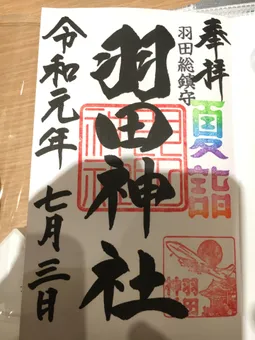 奉拝
夏詣
羽田総鎮守
羽田神社
令和元年 七月三日
羽田
神社